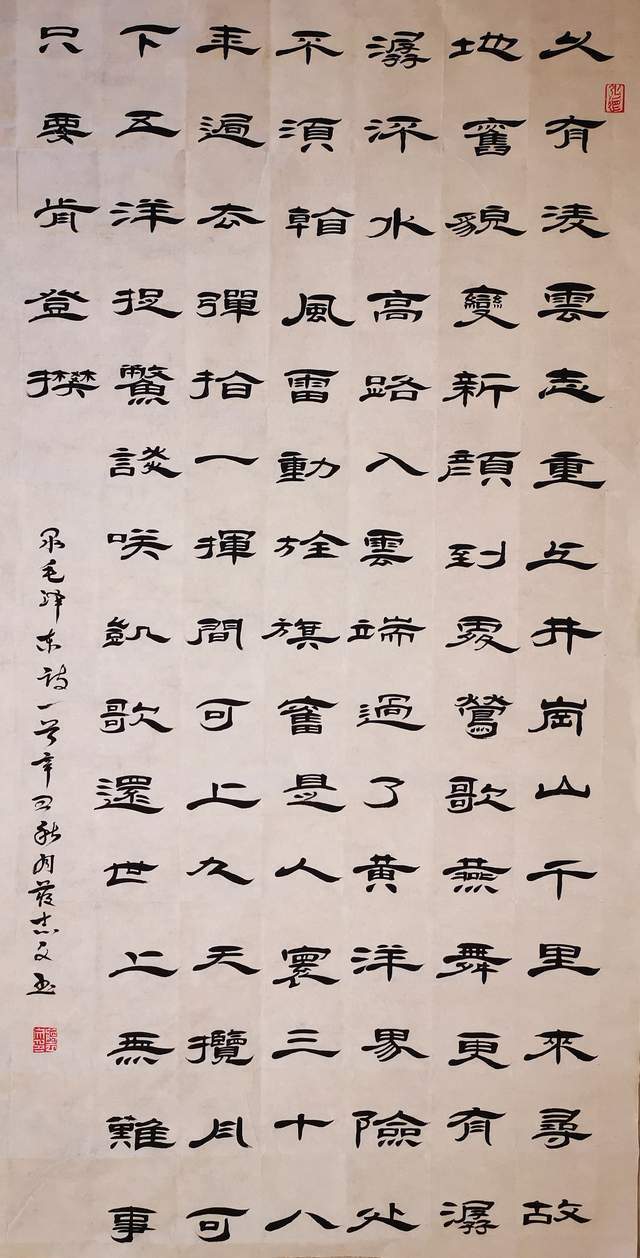 久有凌雲志重上井崗山千里來尋故
地舊貌變新顏到處鶯歌燕舞更有潺
潺流水高路入雲端過了黃洋界險处
不須看風雷動旌旗奮是人寰三十八
年過去彈指一揮間可上九天攬月可
下五洋捉鱉談咲凱歌還世上無難事
只要肯登攀
录毛泽东詩一首辛丑秋月志文書